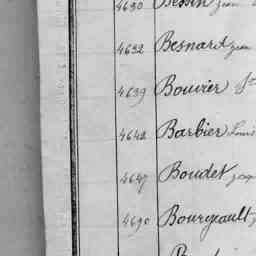 4630 Bessin Jean
4632 Besnard Jean
4639 Bouvier
4642 Barbier Louis
4647 Boudet
4690 Bourgeault